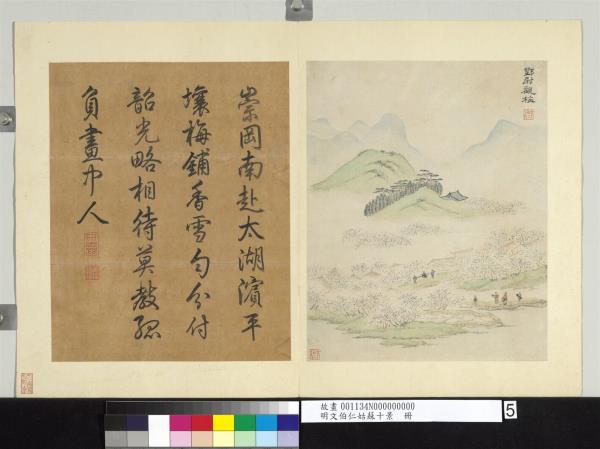 鄧尉觀梅
崇岡南赴太湖濱平
壤梅鋪香雪勻分付
韶光略相待莫教孤
負畫中人
故畫 001134N000000000
明文伯仁姑蘇十景 冊
5